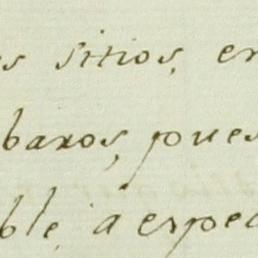 es sitios, en
baros, pues
ble, á espec